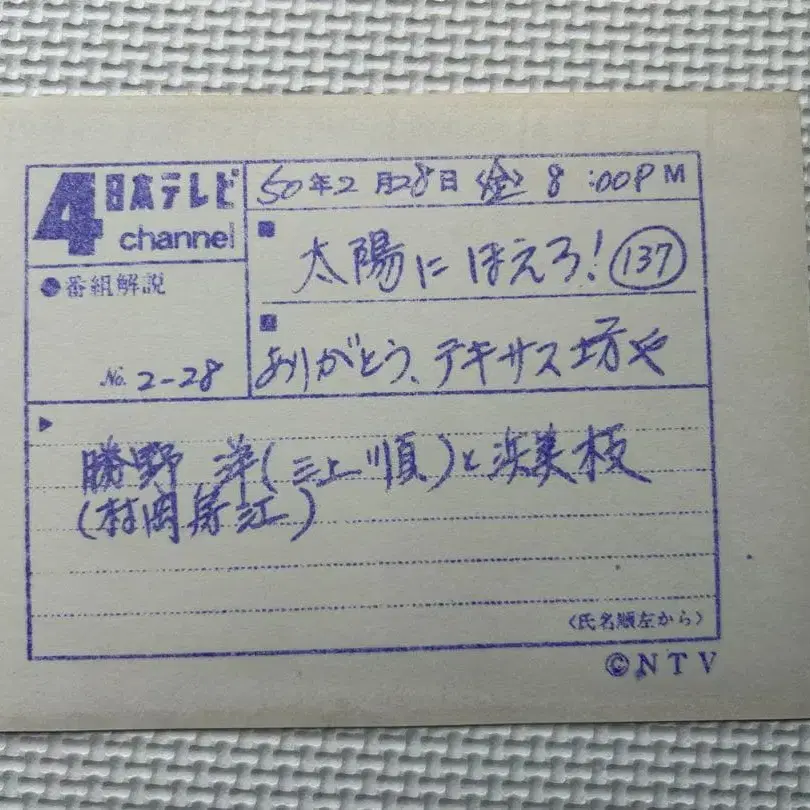 4 日本テレビ
channel
50年2月28日(金) 8:00PM
●番組解説
No. 2-28
■ 太陽にほえろ! 137
■ ありがとう、テキサス坊や
▶ 勝野 洋(三上順)と浜美枝
(村岡寿江)
<氏名順左から>
©NTV